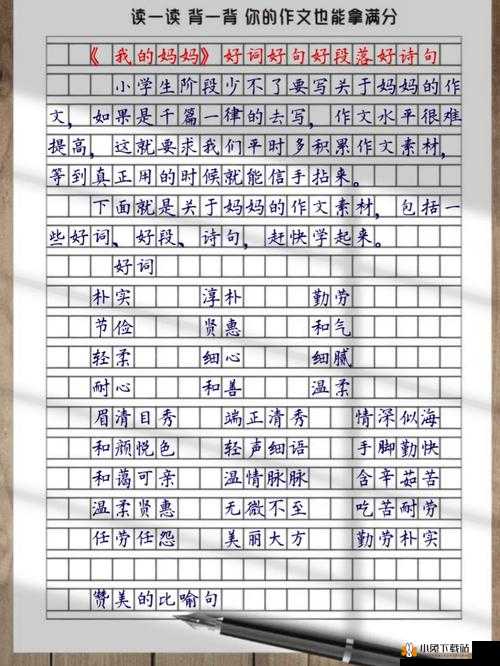 读一读 背一背 你的作文也能拿满分
《我的妈妈》好词好句好段落好诗句
小学生阶段少不了要写关于妈妈的作
文，如果是千篇一律的去写，作文水平很难
提高，这就要求我们平时多积累作文素材，
等到真正用的时候就能信手拈来。
下面就是关于妈妈的作文素材，包括一
些好词、好段、诗句，赶快学起来。
好词
朴实 淳朴 勤劳
节俭 贤惠 和气
轻柔 细心 细腻
耐心 和善 温柔
眉清目秀 端正清秀 情深似海
和颜悦色 轻声细语 手脚勤快
和蔼可亲 温情脉脉 含辛茹苦
温柔贤惠 无微不至 吃苦耐劳
任劳任怨 美丽大方 勤劳朴实
赞美的比喻句
小兔下载站